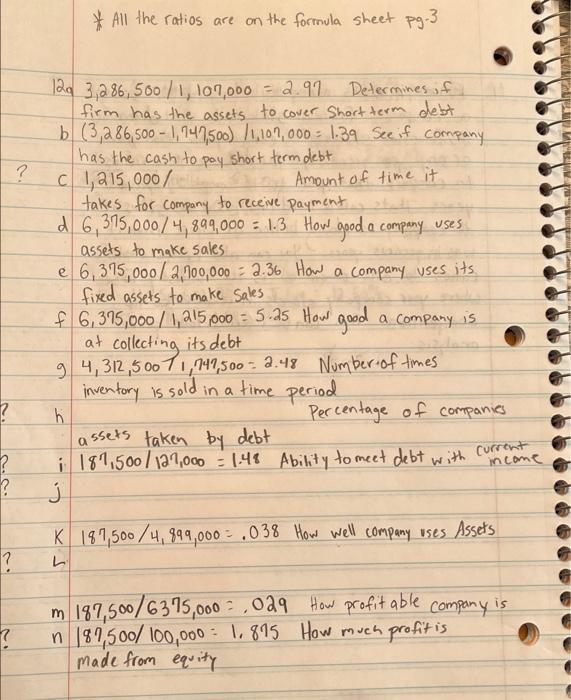 * All the ratios are on the formula sheet pg-3
12a 3,286,500 / 1,107,000 = 2.97 Determines if
firm has the assets to cover Short term debt
b (3,286,500 - 1,747,500) / 1,107,000 = 1.39 See if company
has the cash to pay short term debt
? c 1,215,000/ Amount of time it
takes for company to receive payment
d 6,375,000 / 4,899,000 = 1.3 How good a company uses
assets to make sales
e 6,375,000 / 2,700,000 = 2.36 How a company uses its
fixed assets to make sales
f 6,375,000 / 1,215,000 = 5.25 How good a company is
at collecting its debt
g 4,312,500 / 1,747,500 = 2.48 Number of times
inventory is sold in a time period
? h Percentage of companies
assets taken by debt
? i 187,500 / 127,000 = 1.48 Ability to meet debt with current income
? j
K 187,500 / 4,899,000 = .038 How well company uses Assets
? L
m 187,500 / 6375,000 = .029 How profitable company is
? n 187,500 / 100,000 = 1.875 How much profit is
made from equity